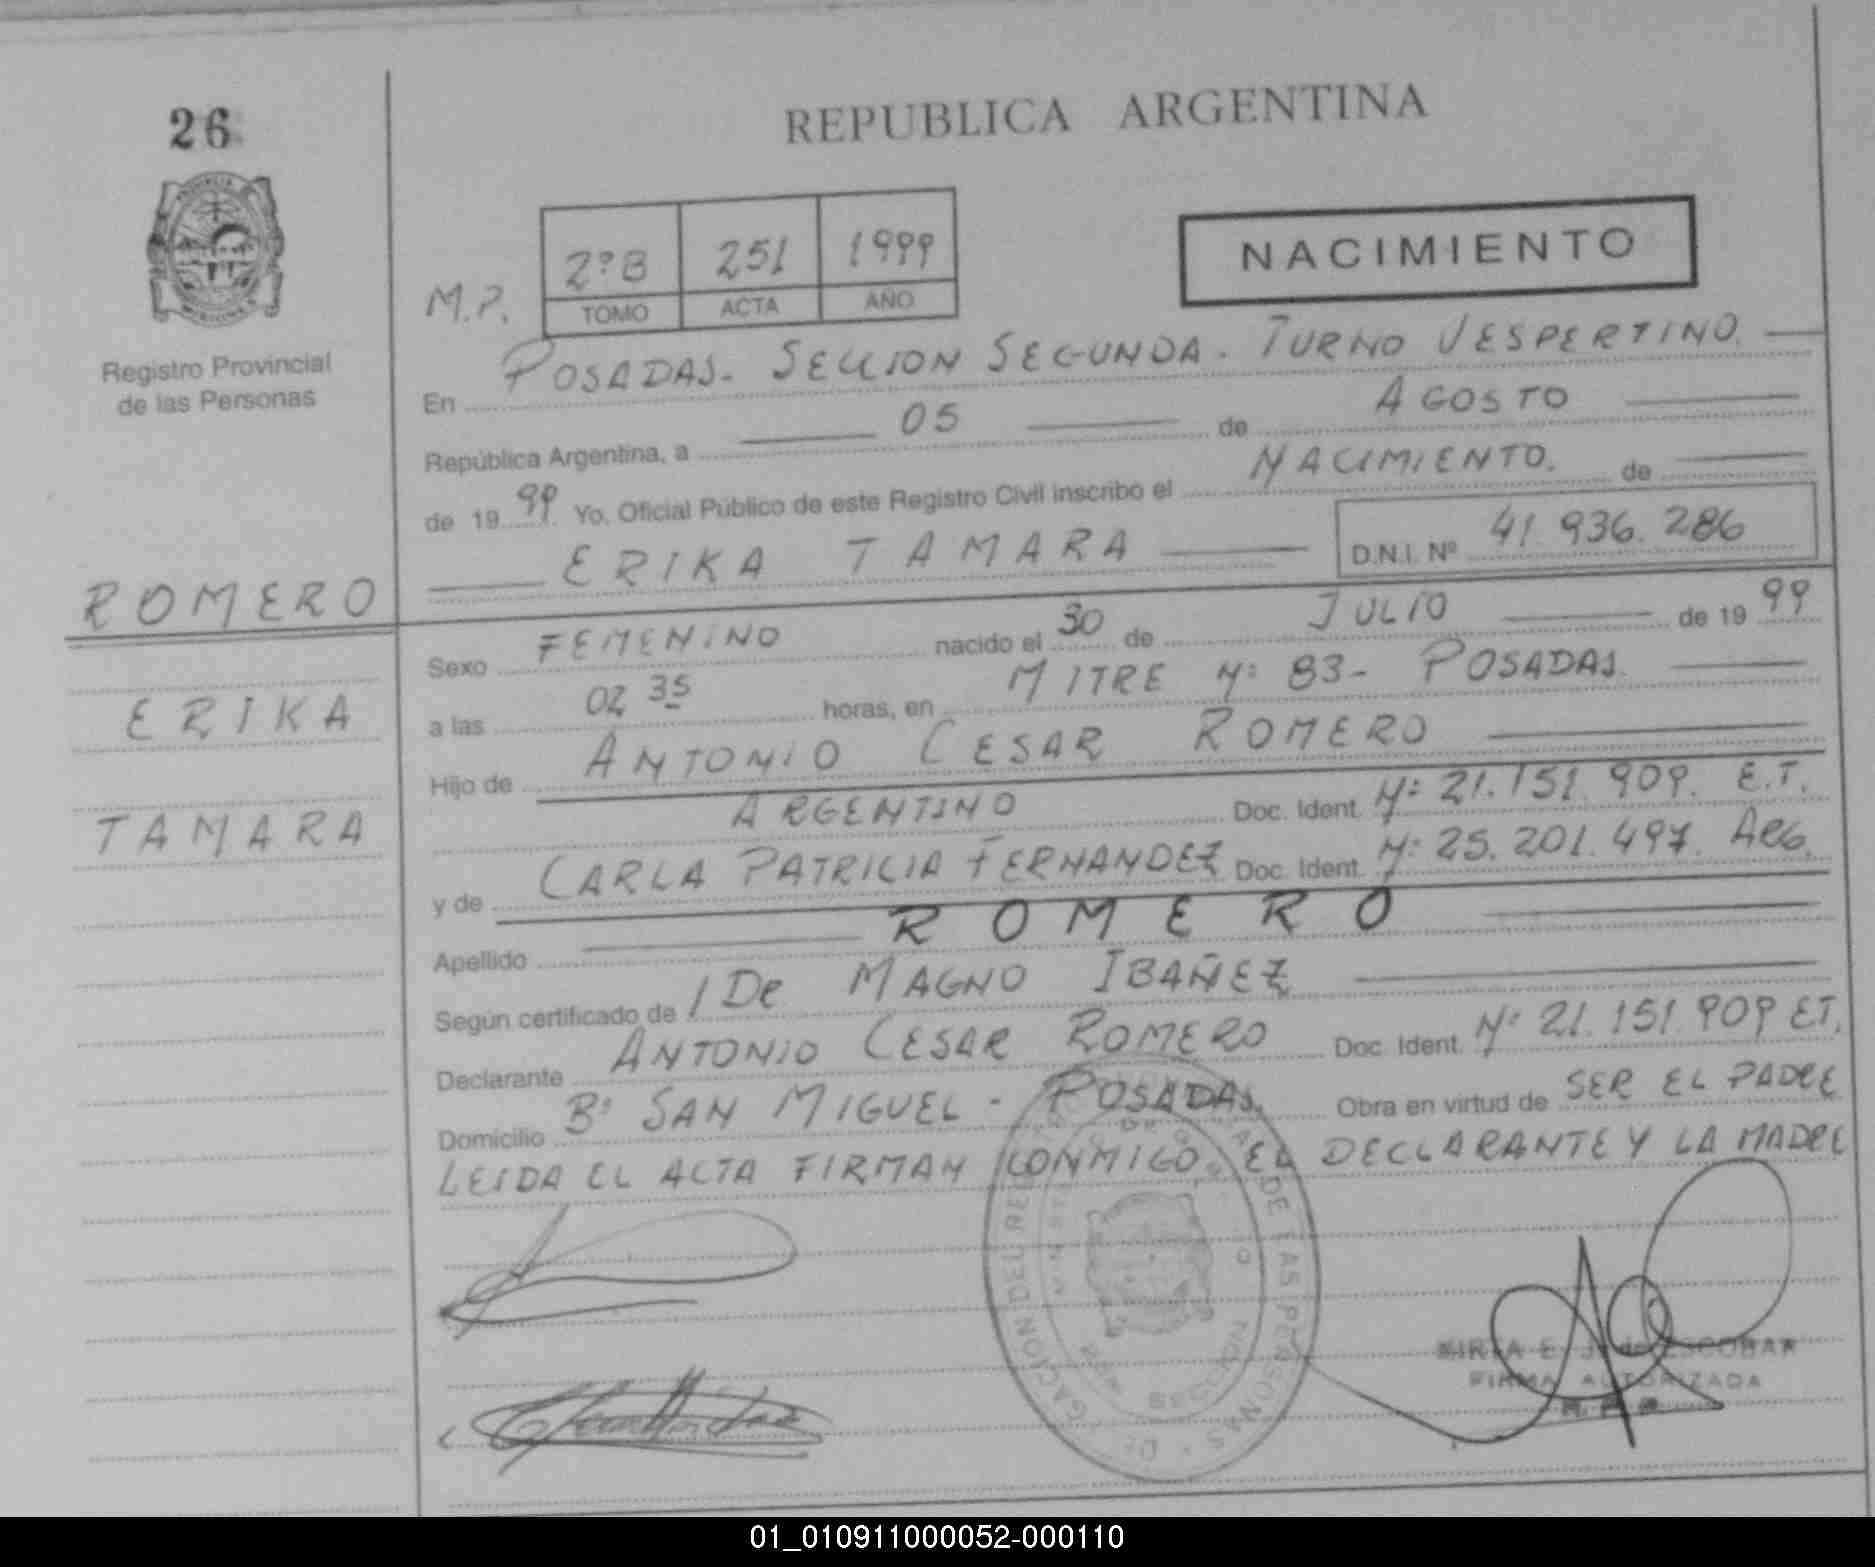 26
REPUBLICA ARGENTINA
Registro Provincial
de las Personas
M.P.
2º B 251 1999
TOMO ACTA AÑO
NACIMIENTO
En POSADAS. SECCION SEGUNDA. TURNO VESPERTINO.
República Argentina, a 05 de AGOSTO
de 19 99 Yo, Oficial Público de este Registro Civil inscribo el NACIMIENTO. de
ERIKA TAMARA D.N.I. Nº 41.936.286
ROMERO
ERIKA
TAMARA
Sexo FEMENINO nacido el 30 de JULIO de 19 99
a las 02 35 horas, en MITRE Nº 83- POSADAS.
Hijo de ANTONIO CESAR ROMERO
ARGENTINO Doc. Ident. Nº 21.151.909. E.T.
y de CARLA PATRICIA FERNANDEZ Doc. Ident. Nº 25.201.497. ARG.
Apellido ROMERO
Según certificado de / De MAGNO IBAÑEZ
Declarante ANTONIO CESAR ROMERO Doc. Ident. Nº 21.151.909 ET.
Domicilio Bº SAN MIGUEL - POSADAS. Obra en virtud de SER EL PADRE
LEIDA EL ACTA FIRMAN CONMIGO EL DECLARANTE Y LA MADRE
DE LAS PERSONAS
MIRTA E. J. de ESCOBAR
FIRMA AUTORIZADA
01_010911000052-000110